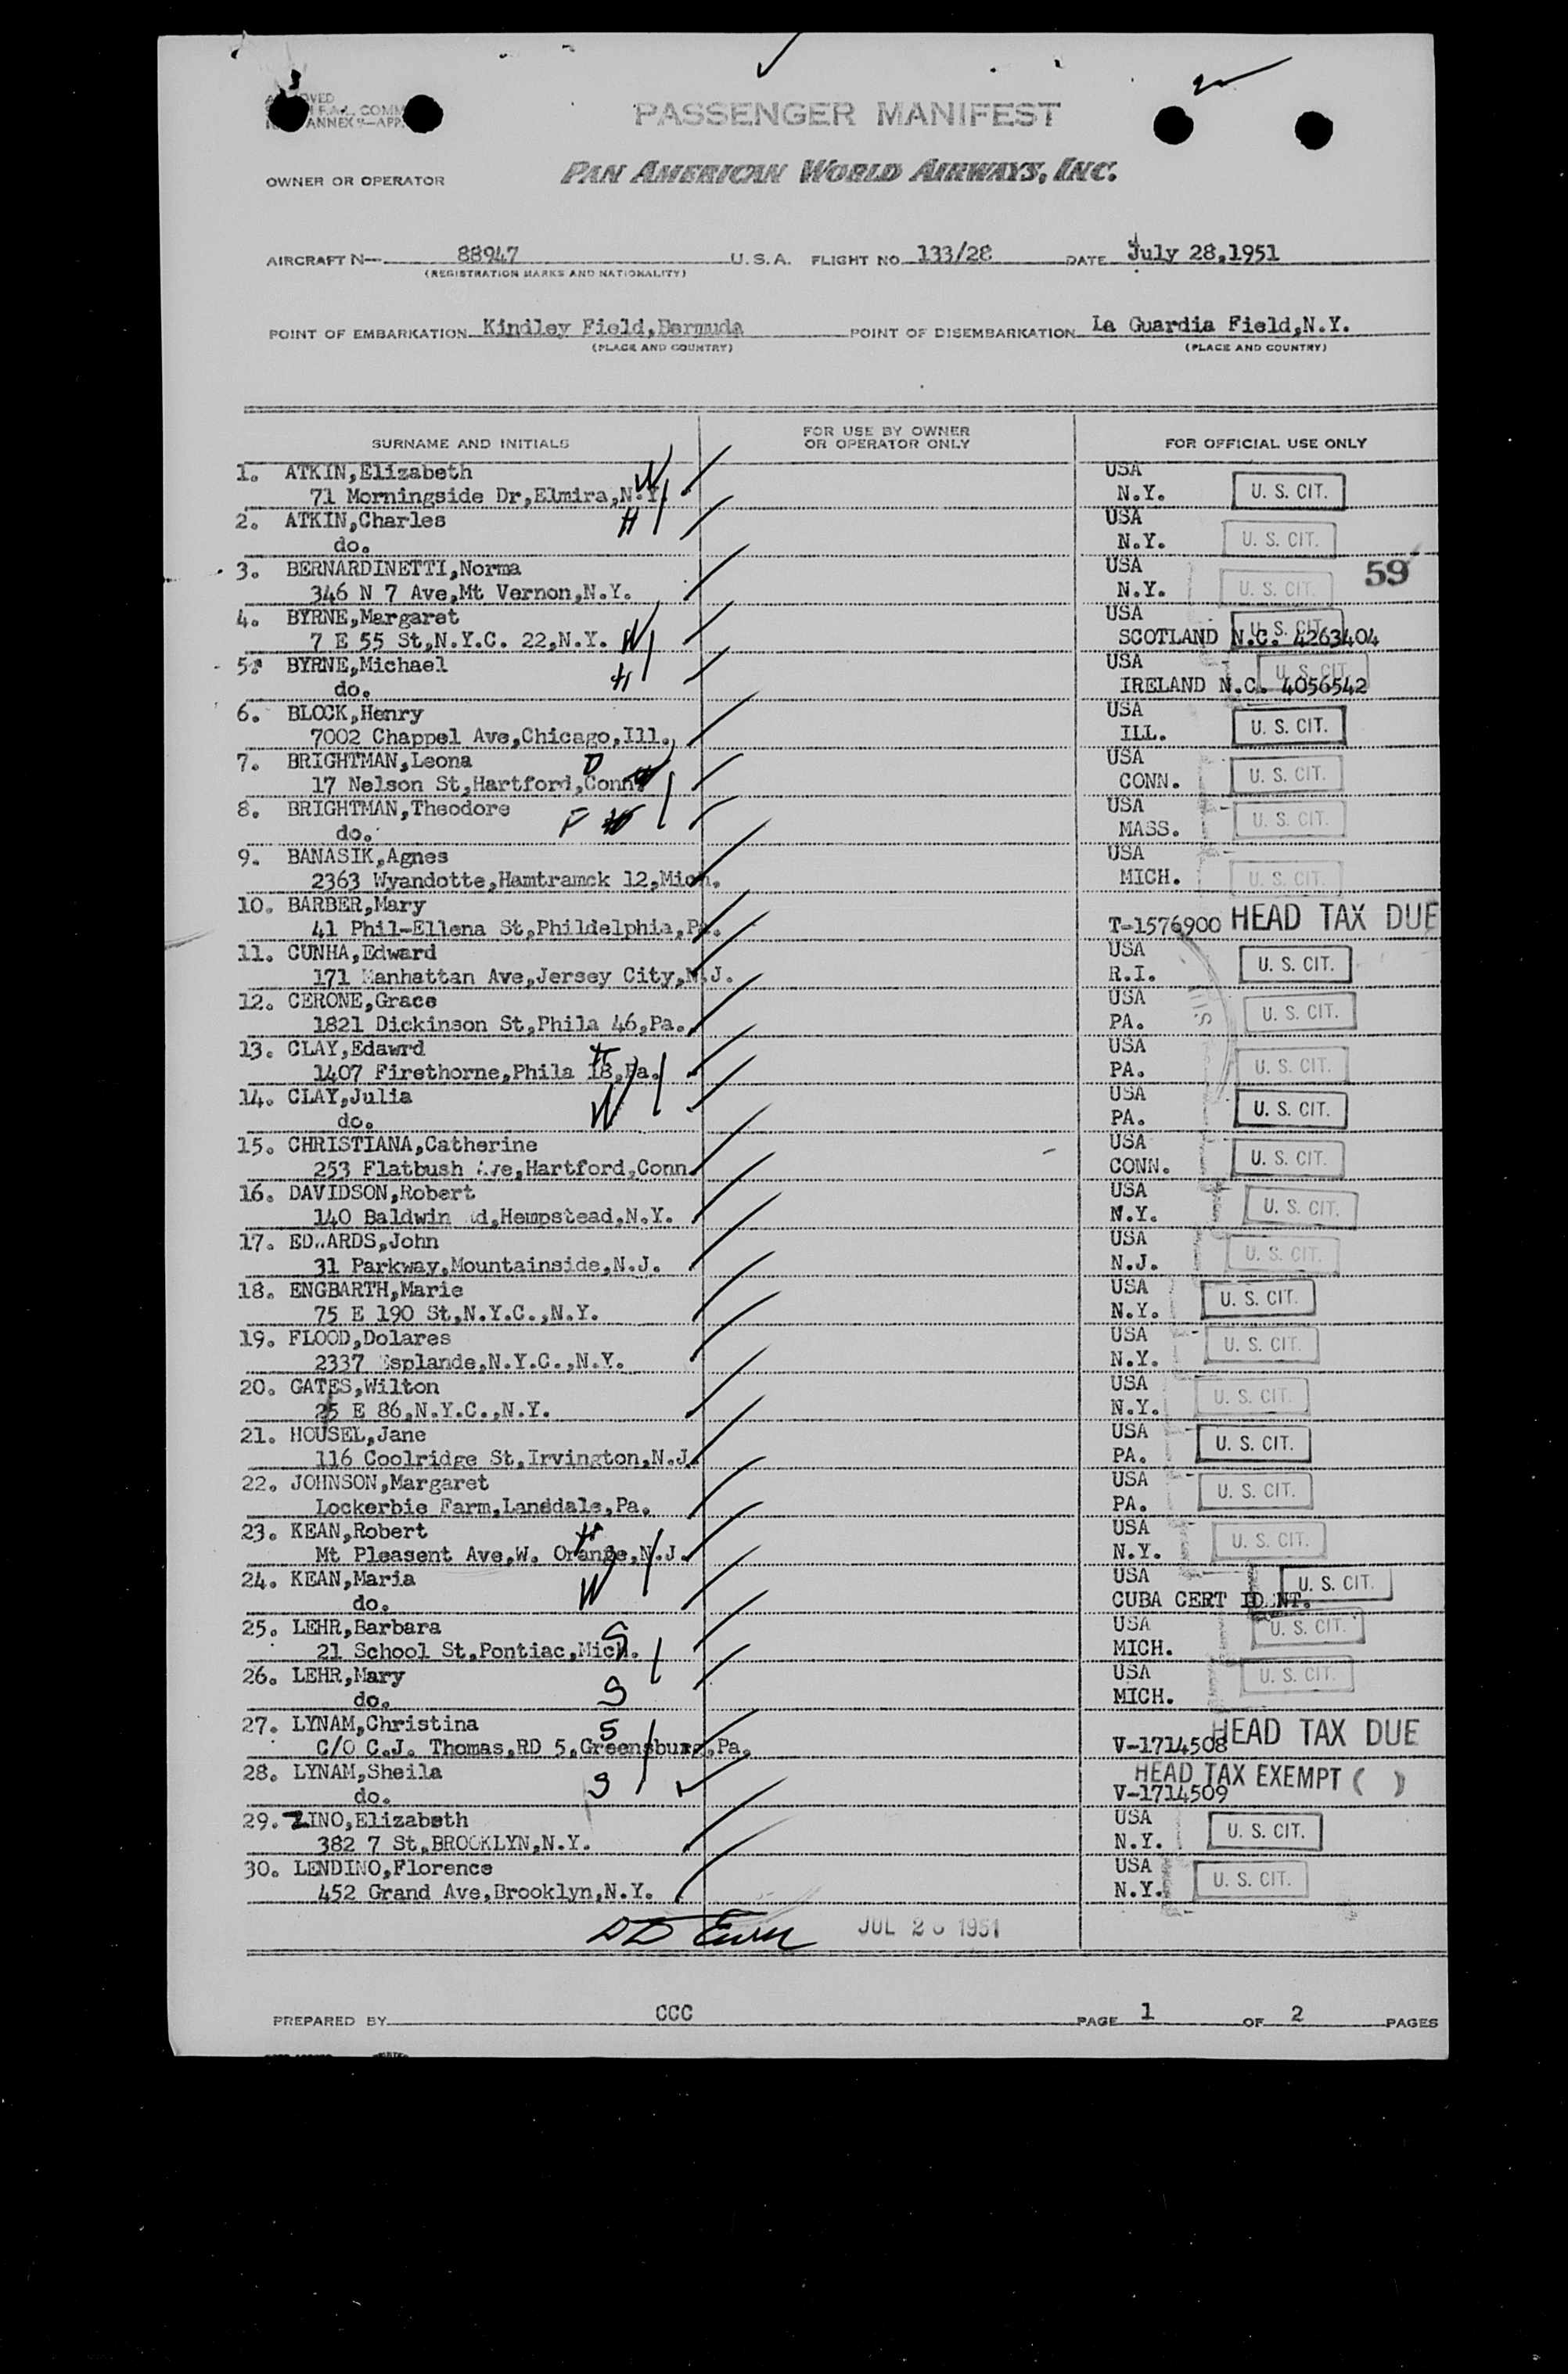 PASSENGER MANIFEST
PAN AMERICAN WORLD AIRWAYS, INC.
OWNER OR OPERATOR
AIRCRAFT N— 88947 U.S.A. FLIGHT NO. 133/28 DATE July 28,1951
(REGISTRATION MARKS AND NATIONALITY)
POINT OF EMBARKATION Kindley Field,Bermuda POINT OF DISEMBARKATION La Guardia Field,N.Y.
(PLACE AND COUNTRY) (PLACE AND COUNTRY)
SURNAME AND INITIALS FOR USE BY OWNER OR OPERATOR ONLY FOR OFFICIAL USE ONLY
1. ATKIN,Elizabeth W USA
71 Morningside Dr,Elmira,N.Y. N.Y. U. S. CIT.
2. ATKIN,Charles H USA
do. N.Y. U. S. CIT.
3. BERNARDINETTI,Norma USA 59
346 N 7 Ave,Mt Vernon,N.Y. N.Y. U. S. CIT.
4. BYRNE,Margaret USA U. S. CIT.
7 E 55 St,N.Y.C. 22,N.Y. W SCOTLAND N.C. 4263404
5. BYRNE,Michael H USA U. S. CIT.
do. IRELAND N.C. 4056542
6. BLOCK,Henry USA
7002 Chappel Ave,Chicago,Ill. ILL. U. S. CIT.
7. BRIGHTMAN,Leona D USA
17 Nelson St,Hartford,Conn. CONN. U. S. CIT.
8. BRIGHTMAN,Theodore F USA
do. MASS. U. S. CIT.
9. BANASIK,Agnes USA
2363 Wyandotte,Hamtramck 12,Mich. MICH. U. S. CIT.
10. BARBER,Mary
41 Phil-Ellena St,Phildelphia,Pa. T-1576900 HEAD TAX DUE
11. CUNHA,Edward USA
171 Manhattan Ave,Jersey City,N.J. R.I. U. S. CIT.
12. CERONE,Grace USA
1821 Dickinson St,Phila 46,Pa. PA. U. S. CIT.
13. CLAY,Edawrd H USA
1407 Firethorne,Phila 18,Pa. PA. U. S. CIT.
14. CLAY,Julia W USA
do. PA. U. S. CIT.
15. CHRISTIANA,Catherine USA
253 Flatbush Ave,Hartford,Conn. CONN. U. S. CIT.
16. DAVIDSON,Robert USA
140 Baldwin Rd,Hempstead,N.Y. N.Y. U. S. CIT.
17. EDWARDS,John USA
31 Parkway,Mountainside,N.J. N.J. U. S. CIT.
18. ENGBARTH,Marie USA
75 E 190 St,N.Y.C.,N.Y. N.Y. U. S. CIT.
19. FLOOD,Dolares USA
2337 Esplande,N.Y.C.,N.Y. N.Y. U. S. CIT.
20. GATES,Wilton USA
25 E 86,N.Y.C.,N.Y. N.Y. U. S. CIT.
21. HOUSEL,Jane USA
116 Coolridge St,Irvington,N.J. PA. U. S. CIT.
22. JOHNSON,Margaret USA
Lockerbie Farm,Lansdale,Pa. PA. U. S. CIT.
23. KEAN,Robert H USA
Mt Pleasent Ave,W. Orange,N.J. N.Y. U. S. CIT.
24. KEAN,Maria W USA U. S. CIT.
do. CUBA CERT IDENT.
25. LEHR,Barbara S USA U. S. CIT.
21 School St,Pontiac,Mich. MICH.
26. LEHR,Mary S USA U. S. CIT.
do. MICH.
27. LYNAM,Christina S HEAD TAX DUE
C/O C.J. Thomas,RD 5,Greensburg,Pa. V-1714508
28. LYNAM,Sheila S HEAD TAX EXEMPT ( )
do. V-1714509
29. ZINO,Elizabeth USA
382 7 St,BROOKLYN,N.Y. N.Y. U. S. CIT.
30. LENDINO,Florence USA
452 Grand Ave,Brooklyn,N.Y. N.Y. U. S. CIT.
JUL 28 1951
PREPARED BY CCC PAGE 1 OF 2 PAGES